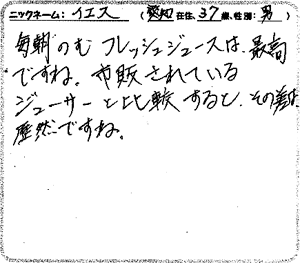 ニックネーム：イエス （愛知 在住、37歳、性別：男）
毎朝のむフレッシュジュースは、最高
ですね。市販されている
ジューサーと比較すると、その差は
歴然ですね。